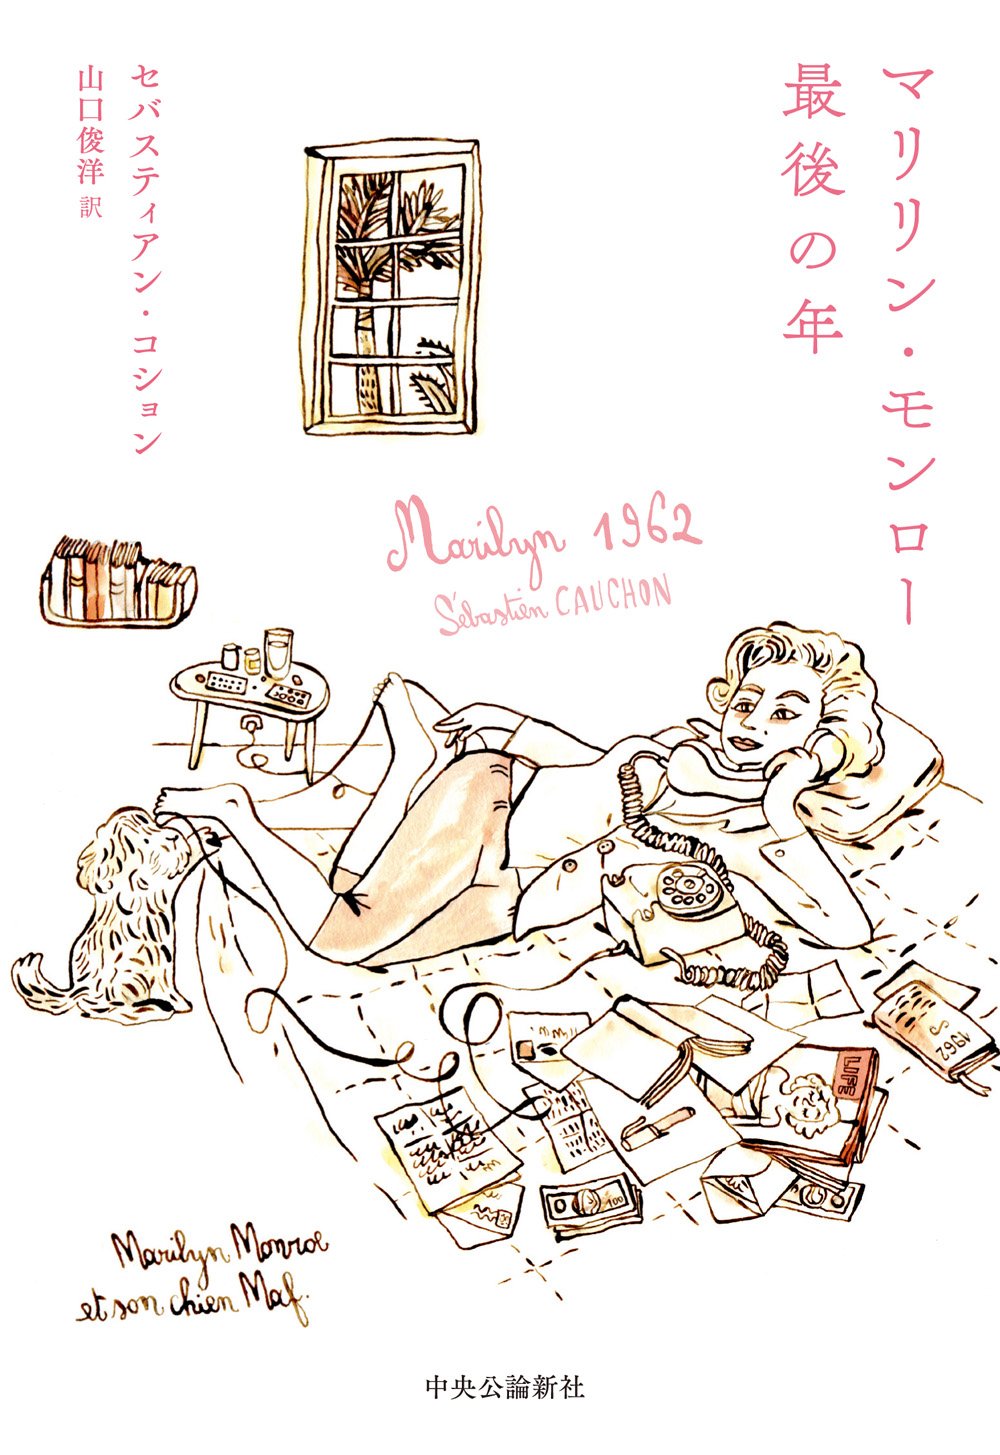 マリリン・モンロー
最後の年
セバスティアン・コション
山口俊洋 訳
Marilyn 1962
Sébastien CAUCHON
LIFE
1962
100
Marilyn Monroe
et son chien Maf.
中央公論新社